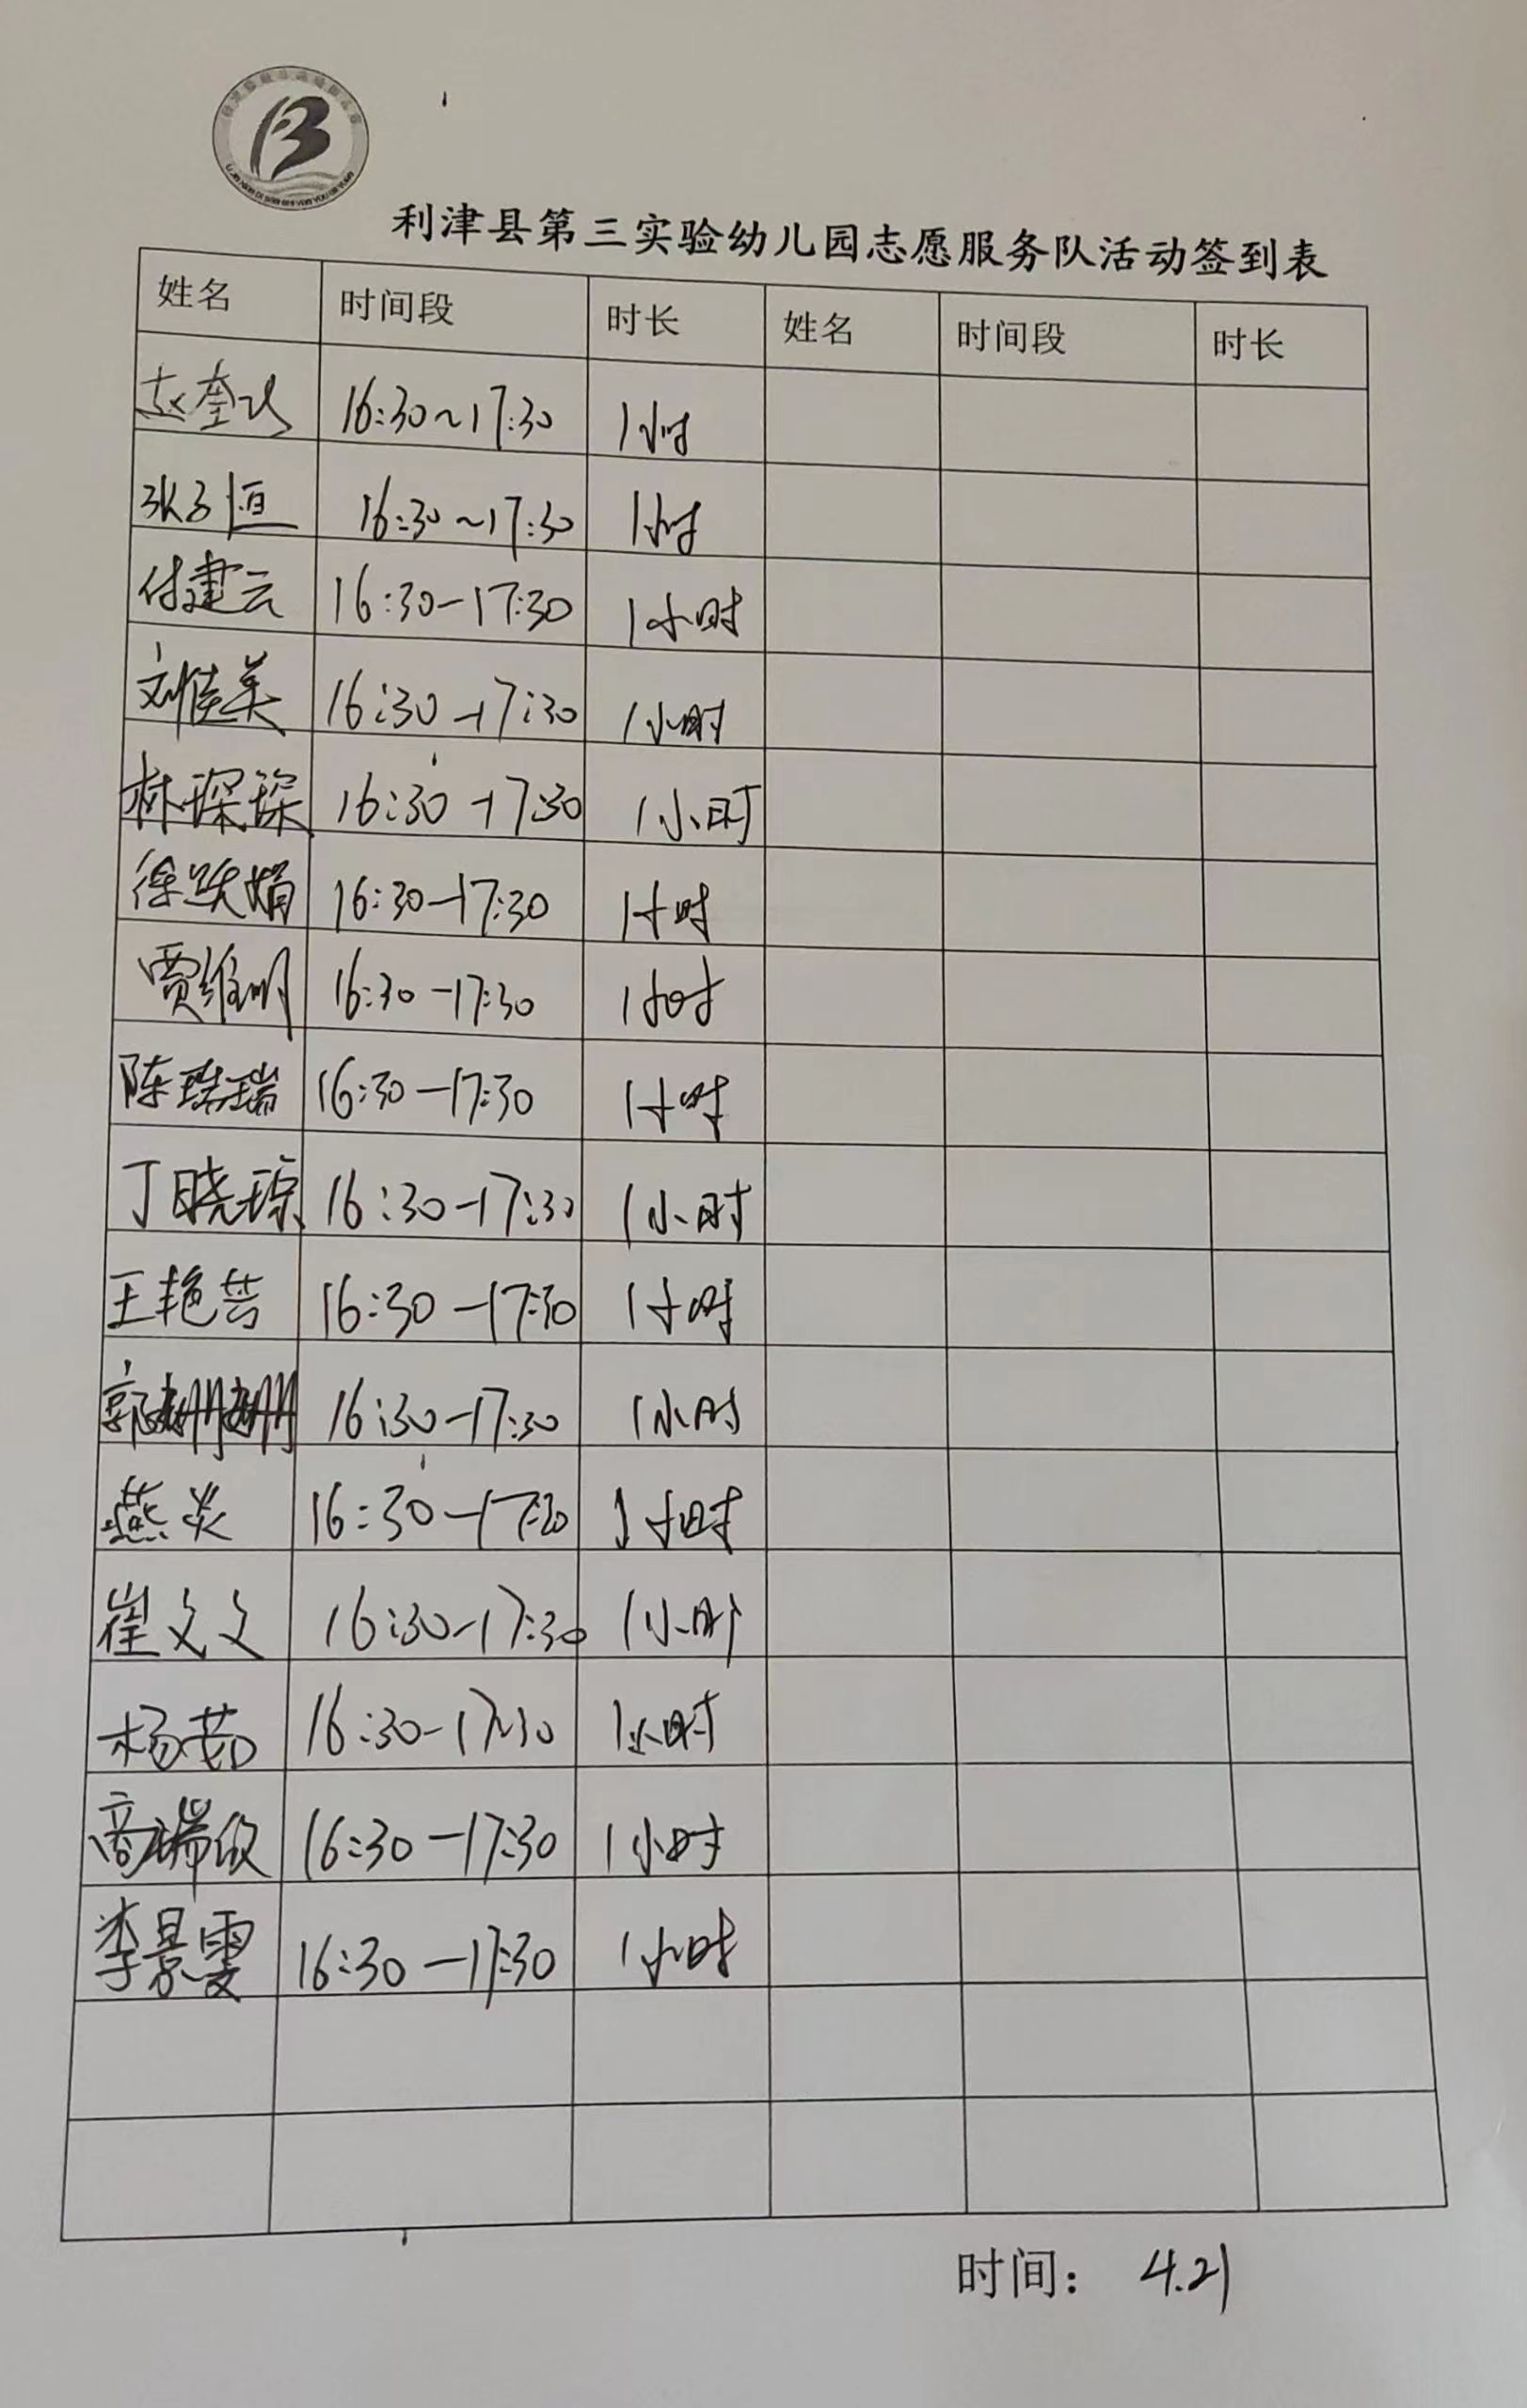 利津县第三实验幼儿园志愿服务队活动签到表
姓名 时间段 时长 姓名 时间段 时长
16:30~17:30 1小时
张子恒 16:30~17:30 1小时
付建云 16:30-17:30 1小时
刘佳美 16:30-17:30 1小时
林琛琛 16:30-17:30 1小时
徐跃娟 16:30-17:30 1小时
贾维明 16:30-17:30 1小时
陈瑞瑞 16:30-17:30 1小时
丁晓琼 16:30-17:30 1小时
王艳芸 16:30-17:30 1小时
郭姗姗 16:30-17:30 1小时
燕炎 16:30-17:30 1小时
崔文文 16:30-17:30 1小时
杨茹 16:30-17:30 1小时
高瑞欣 16:30-17:30 1小时
李景雯 16:30-17:30 1小时
时间: 4.21